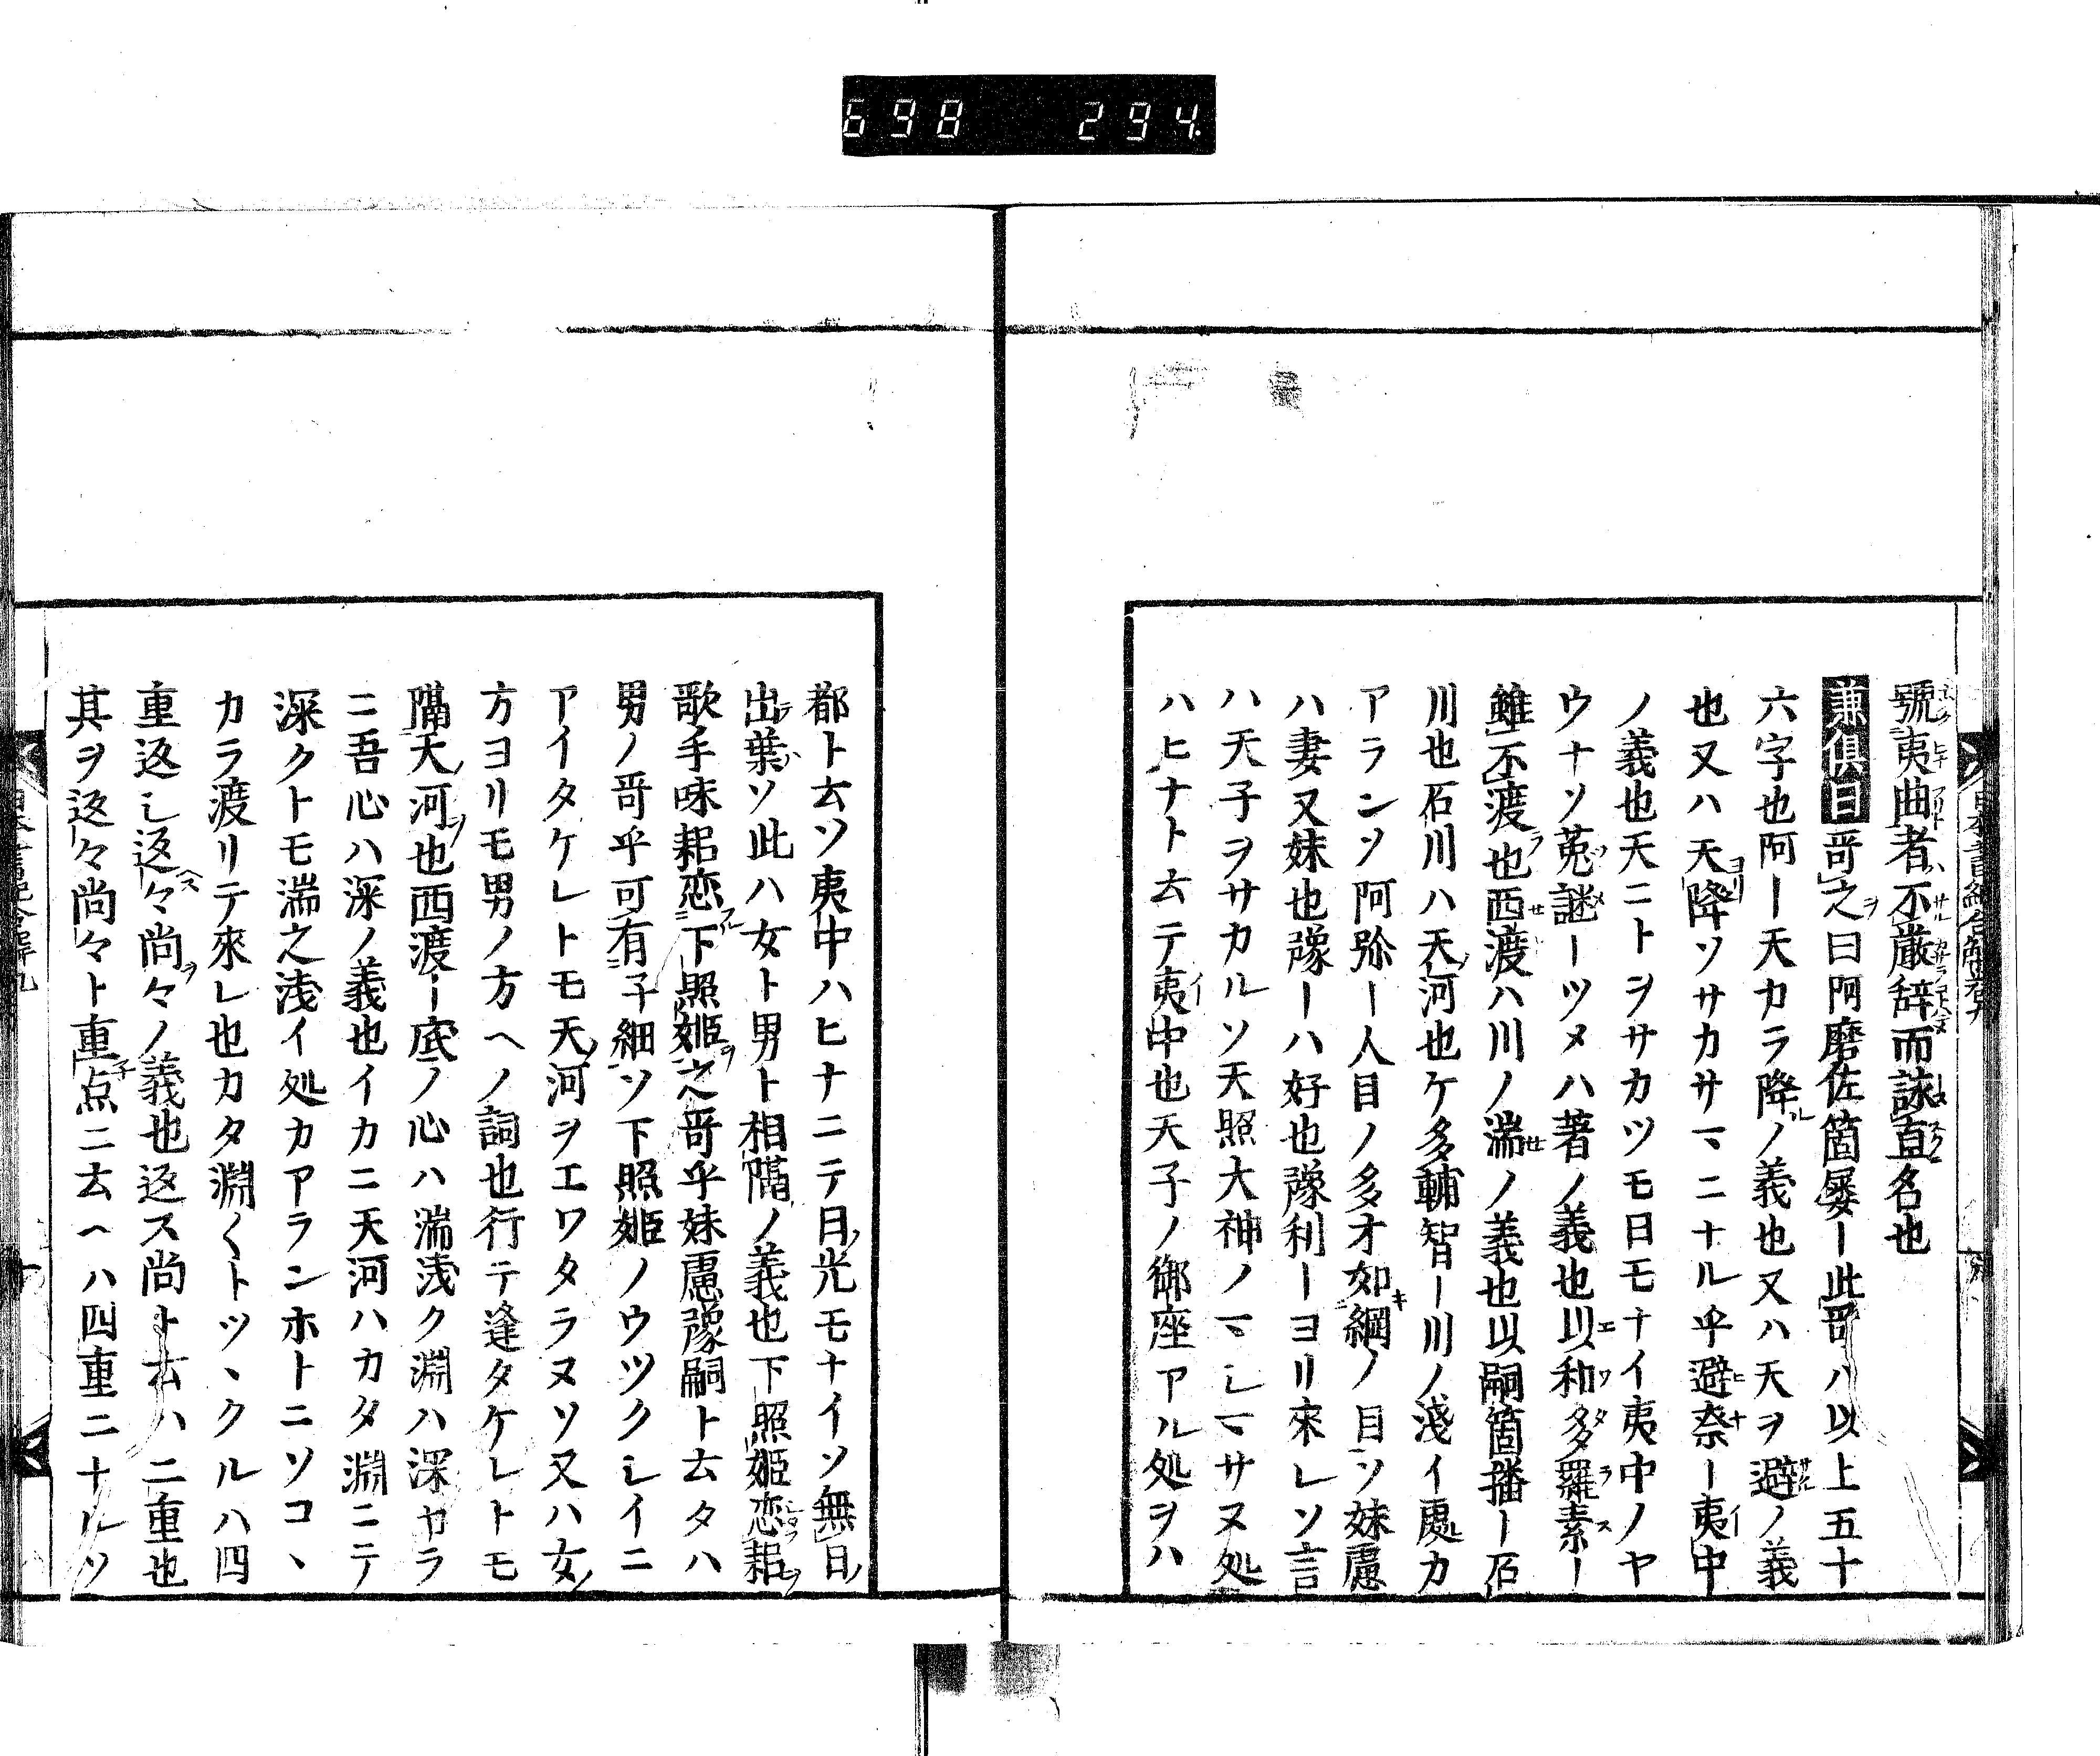 698 294.
號夷曲者不厳辞而詠直名也
兼倶曰哥之曰阿磨佐箇屡ー此哥ハ以上五十
六字也阿ー天カラ降ルノ義也又ハ天ヲ避ノ義
也又ハ天降ソサカサマニナル乎避奈ー夷中
ノ義也天ニトヲサカツモ日モナイ夷中ノヤ
ウナソ菟謎ーツメハ著ノ義也以和多羅素ー
雖不渡也西渡ハ川ノ湍ノ義也以嗣箇播ー石
川也石川ハ天河也ケ多輔智ー川ノ淺イ處カ
アランソ阿弥ー人目ノ多オ如網ノ目ソ妹慮
ハ妻又妹也豫ーハ好也豫利ーヨリ來レソ言
ハ天子ヲサカルソ天照大神ノマシマサヌ処
ハヒナト云テ夷中也天子ノ御座アル処ヲハ
都ト云ソ夷中ハヒナニテ日光モナイソ無日
出葉ソ此ハ女ト男ト相隔ノ義也下照姫恋耜
歌手味耜恋下照姫之哥乎妹慮豫嗣ト云タハ
男ノ哥乎可有子細ソ下照姫ノウツクシイニ
アイタケレトモ天河ヲエワタラヌソ又ハ女
方ヨリモ男ノ方ヘノ詞也行テ逢タケレトモ
隔天河也西渡ー底ノ心ハ湍浅ク淵ハ深カラ
ニ吾心ハ深ノ義也イカニ天河ハカタ淵ニテ
深クトモ湍之浅イ処カアランホトニソコヽ
カラ渡リテ來レ也カタ淵〱トツヽクルハ四
重返シ返々尚々ノ義也返ス尚ト云ハ二重也
其ヲ返々尚々ト重点ニ云ヘハ四重ニナルソ